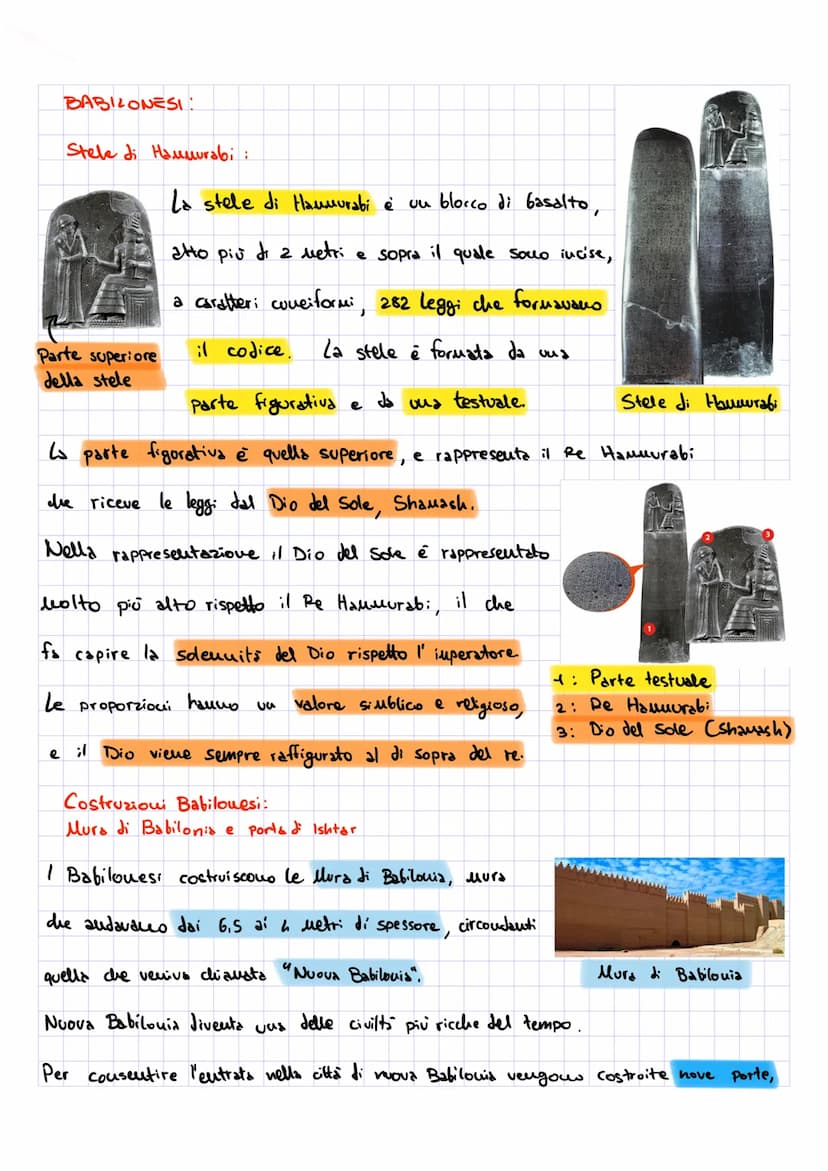 BABILONESI:
Stele di Hammurabi:
La stele di Hammurabi è un blocco di basalto,
alto più di 2 metri e sopra il quale sono incise,
a caratteri cuneiformi, 282 leggi che formavano
il codice. La stele è formata da una
parte figurativa e da una testuale.
Parte superiore
della stele
Stele di Hammurabi
La parte figurativa è quella superiore, e rappresenta il Re Hammurabi
che riceve le leggi dal Dio del Sole, Shamash.
Nella rappresentazione il Dio del Sole è rappresentato
molto più alto rispetto il Re Hammurabi, il che
fa capire la solennità del Dio rispetto l'imperatore
Le proporzioni hanno un valore simblico e religioso,
e il Dio viene sempre raffigurato al di sopra del re.
2
3
1
1: Parte testuale
2: Re Hammurabi
3: Dio del Sole (Shamash)
Costruzioni Babilonesi:
Mura di Babilonia e porta di Ishtar
I Babilonesi costruiscono le Mura di Babilonia, mura
che andavano dai 6,5 ai 4 metri di spessore, circondanti
quella che veniva chiamata "Nuova Babilonia".
Mura di Babilonia
Nuova Babilonia diventa una delle civiltà più ricche del tempo.
Per consentire l'entrata nella città di nuova Babilonia vengono costruite nove porte,